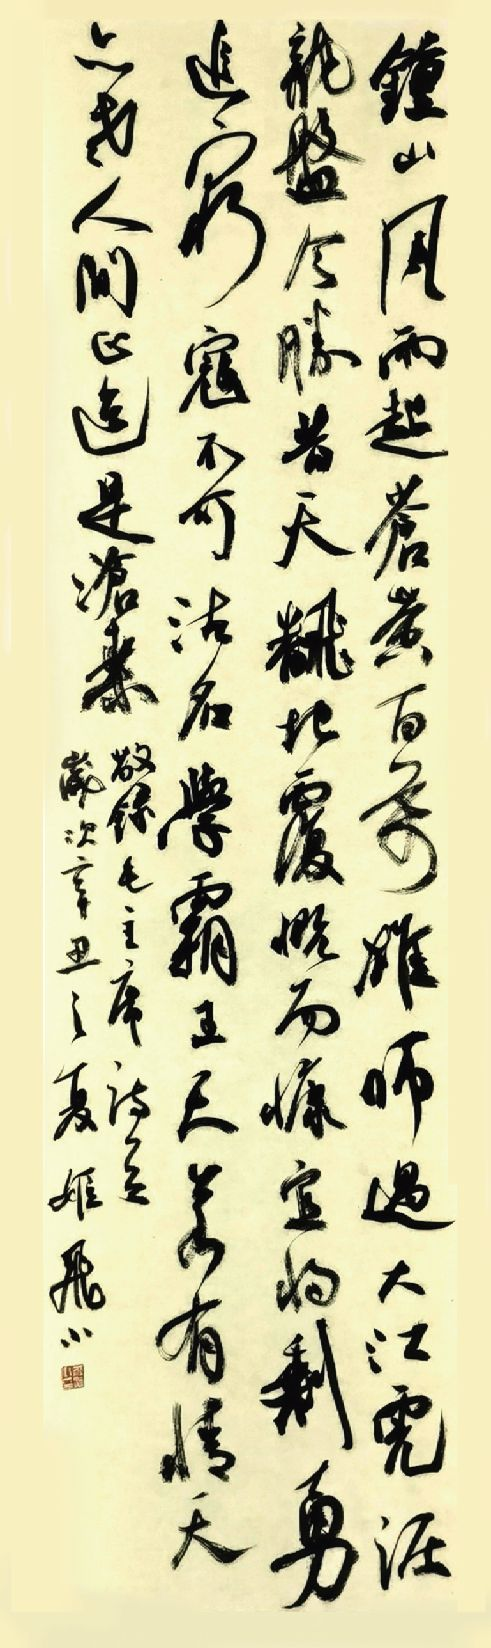 鐘山风雨起蒼黄百萬雄师過大江虎踞
龍盤今勝昔天飜地覆慨而慷宜将剩勇
追窮寇不可沽名學霸王天若有情天
亦老人間正道是滄桑
敬録毛主席詩一首
歲次辛丑之夏 姬飛